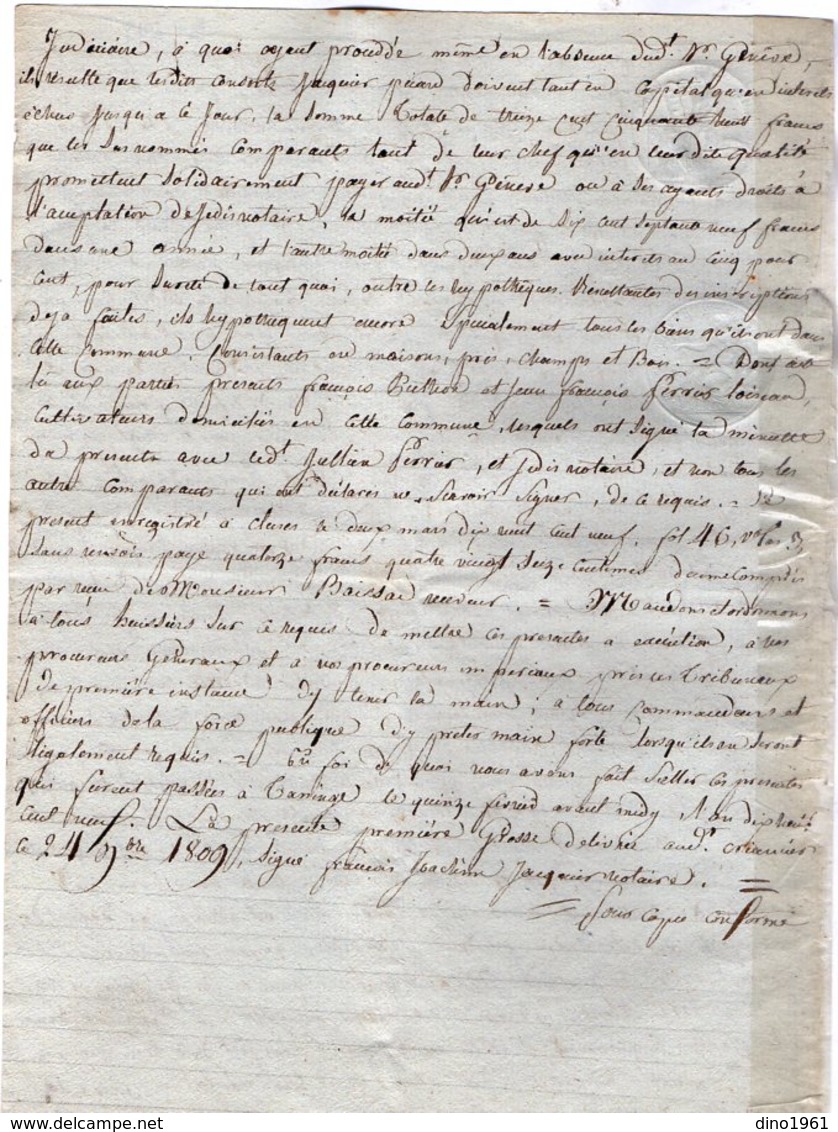 Judiciaire, a quoi ayant procédé même en l'absence dudt. Sr. Genève,
il résulte que lesdits consorts Jacquier picard doivent tant en capital qu'en interets
échus jusqu'a ce jour, la somme totale de treize cent cinquante huit francs
que les susnommés comparants tant de leur chef qu'en leur dite qualité
promettent solidairement payer audt. Sr. Géneve ou à ses ayants droits à
l'acceptation de Jedis notaire, la moitié qui est de six cent septante neuf francs
dans une année, et l'autre moitié dans deux ans avec interets au cinq pour
cent, pour sureté de tout quoi, outre les hypothèques Resultantes des inscriptions
deja faites, ils hypothequent encore specialement tous les biens qu'ils ont dans
cette commune, Consistants en maisons, prés, champs et Bois. = Dont acte
lu aux parties presents françois et jean françois perrier loiseau,
cultivateurs domiciliés en cette commune, lesquels ont signé la minutte
da presente avec ledt. Jullien Perrier, et Jedis notaire, et non tous les
autre comparants qui ont déclarés ne sçavoir signer, de ce requis. = Le
present enregistré a cluses le deux mars dix huit cent neuf. fol 46, vo. Cas 3,
sans renvois payé quatorze francs quatre vingt seize centimes decime compris
par reçu de Monsieur Baissac receveur. = Mandons et ordonnons
à tous huissiers sur ce requis de mettre ces presentes a exécution, à nos
procureurs Généraux et à nos procureurs imperiaux près les Tribunaux
de première instance d'y tenir la main; à tous commandants et
officiers de la force publique d'y preter main forte lorsqu'ils en seront
légalement requis. = En foi de quoi nous avons fait sceller ces presentes
qui furent passées à Taninge le quinze fevrier avant midy l'an dix huit
cent neuf. La presente première Grosse delivrée audt. créancier
le 24 9bre 1809, signé françois Joachim Jacquier notaire. =
= Pour copie conforme
dino1961